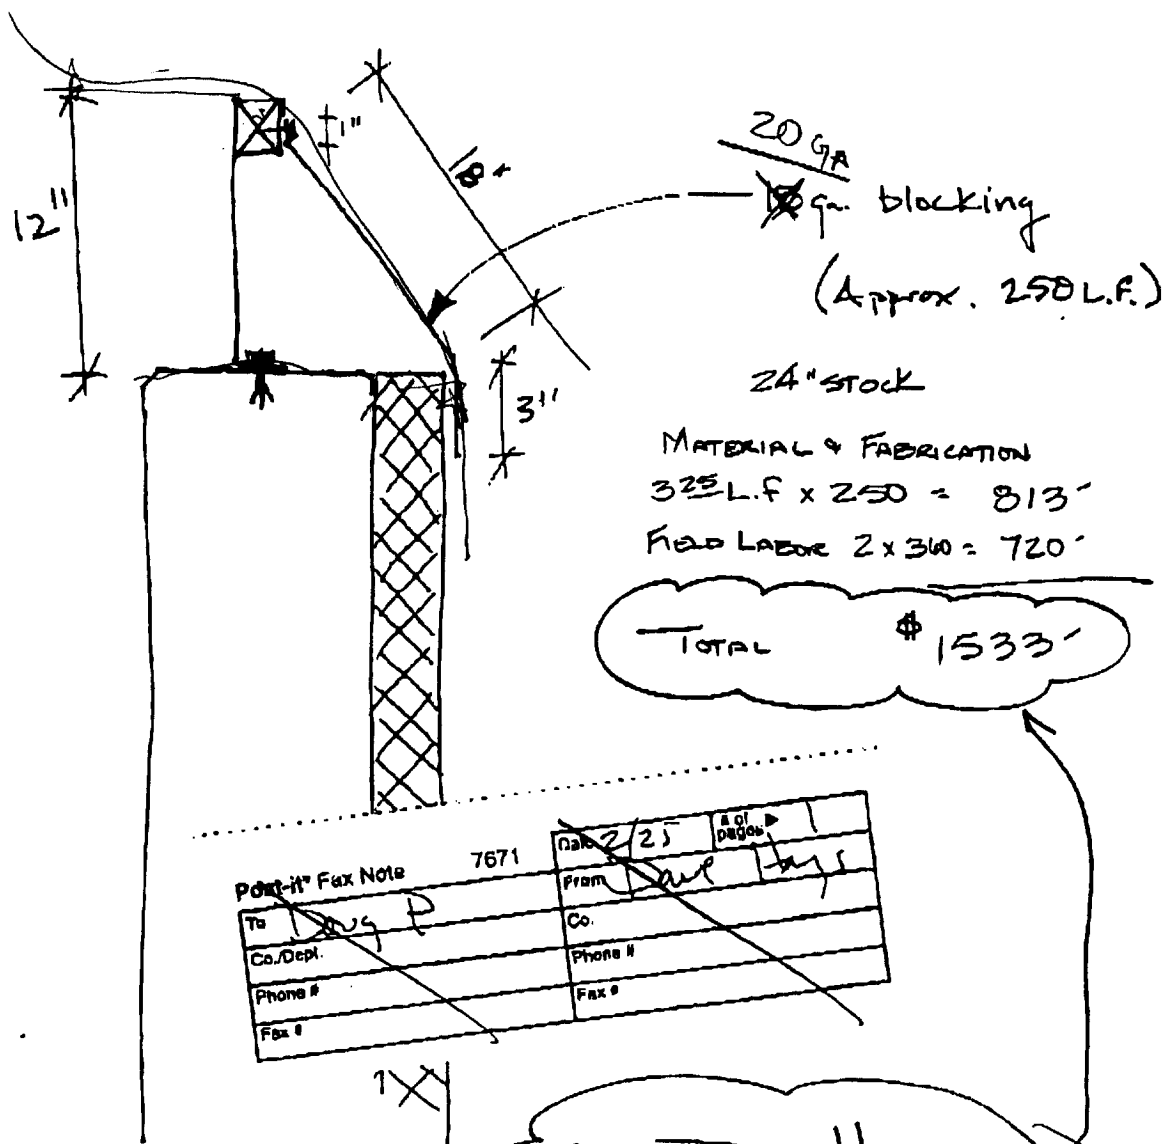 1"
18"+
20 GA
18 ga. blocking
12"
(Approx. 250 L.F.)
24" STOCK
3"
MATERIAL & FABRICATION
3 25 L.F x 250 = 813-
FIELD LABOR 2 x 360 = 720-
TOTAL $ 1533-
Post-it" Fax Note 7671
Date 2/25 # of pages ▶ 1
To Doug P From Dave Hays
Co./Dept. Co.
Phone # Phone #
Fax # Fax #